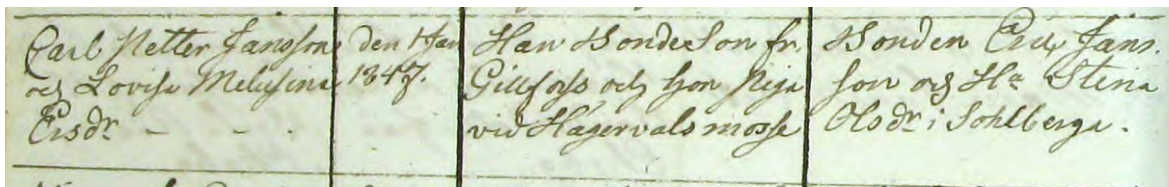 Carl Petter Jansson
och Lovisa Melusina
Ersdr - - .
den 1 Jan
1847.
Han Bondeson fr.
Gillforss och hon Piga
vid Hagervals mosse
Bonden Eric Jans-
son och Ha Stina
Olsdr i Sohlberga.